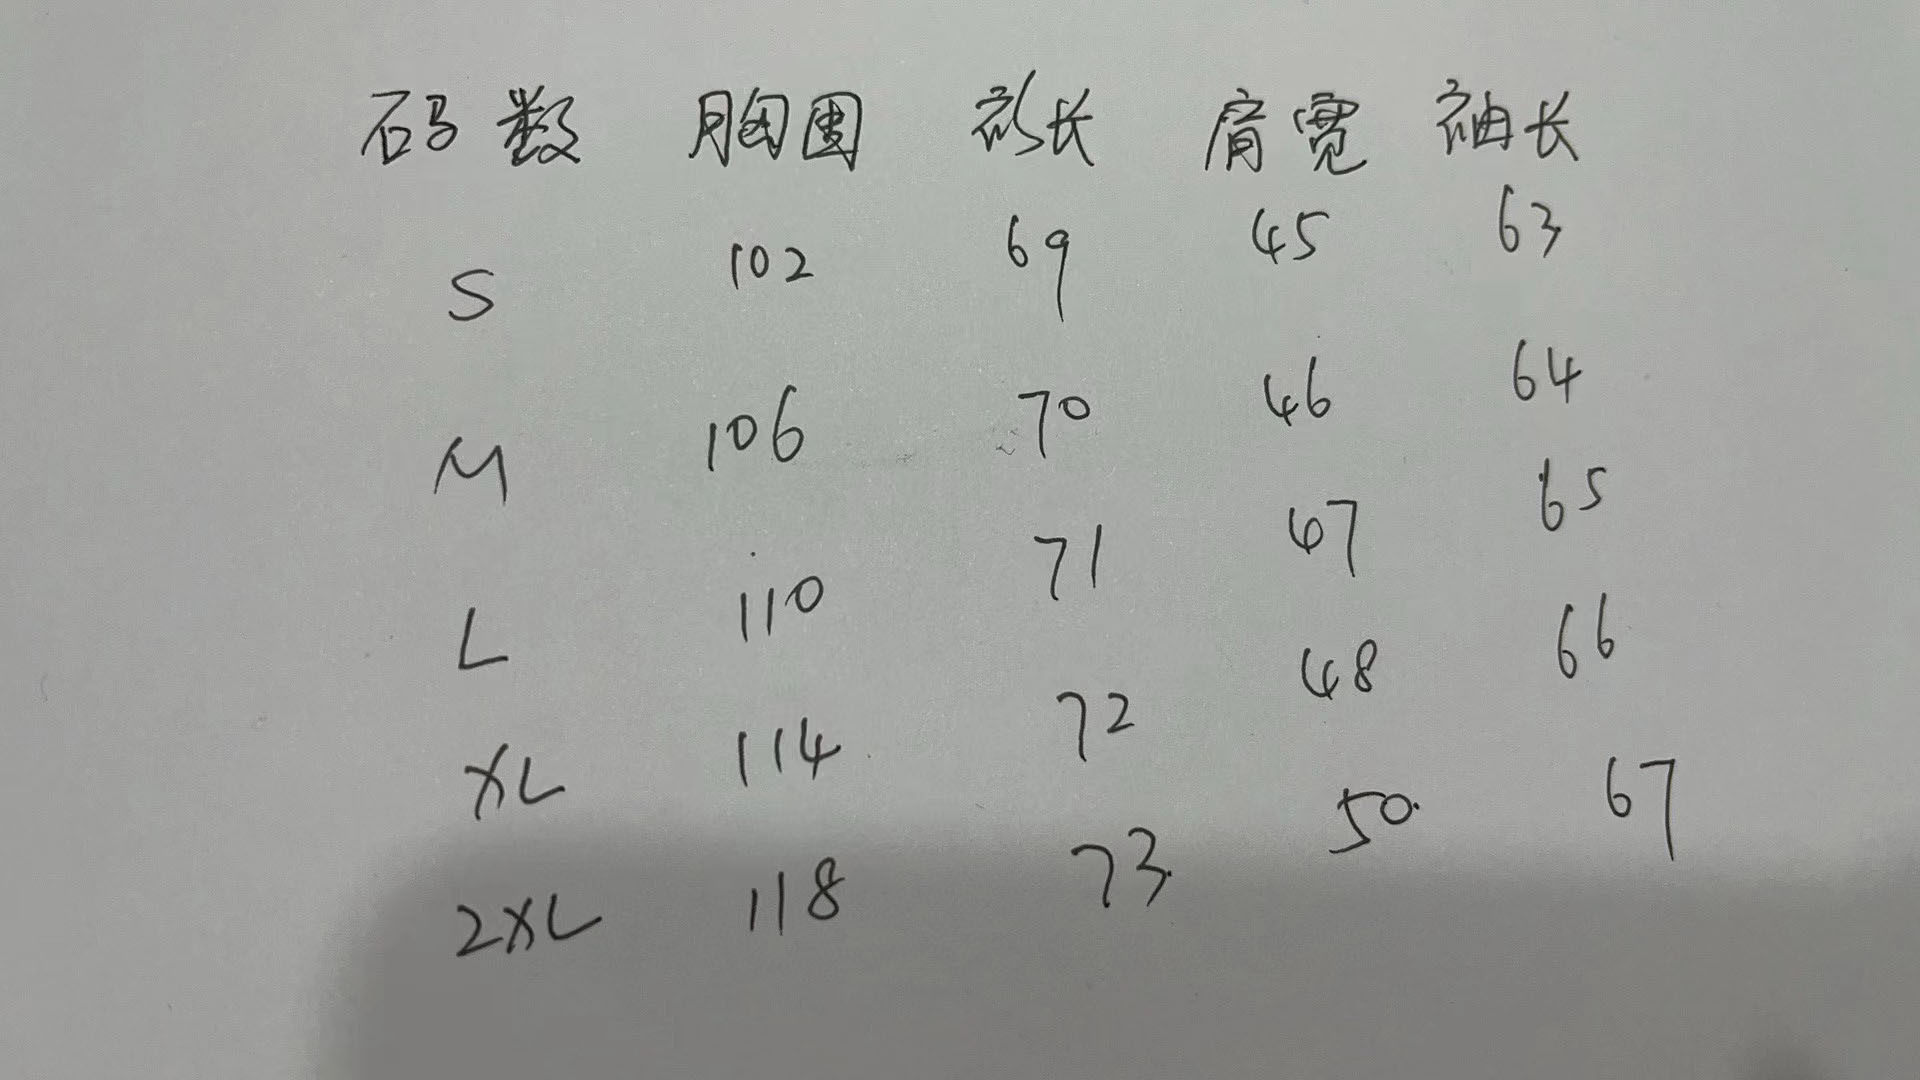 码数 胸围 衫长 肩宽 袖长
S 102 69 45 63
M 106 70 46 64
L 110 71 47 65
XL 114 72 48 66
2XL 118 73 50 67